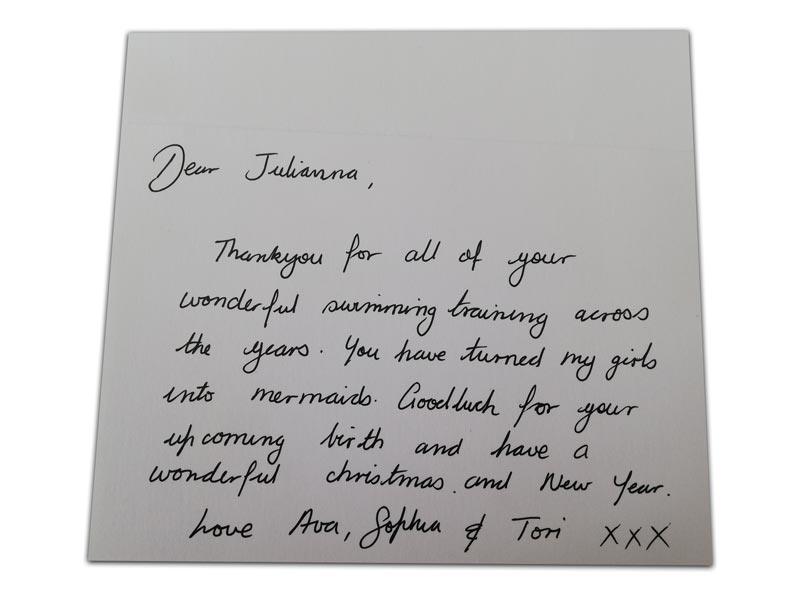 Dear Julianna,
Thankyou for all of your
wonderful swimming training across
the years. You have turned my girls
into mermaids. Goodluck for your
upcoming birth and have a
wonderful christmas and New Year.
Love Ava, Sophia & Tori XXX